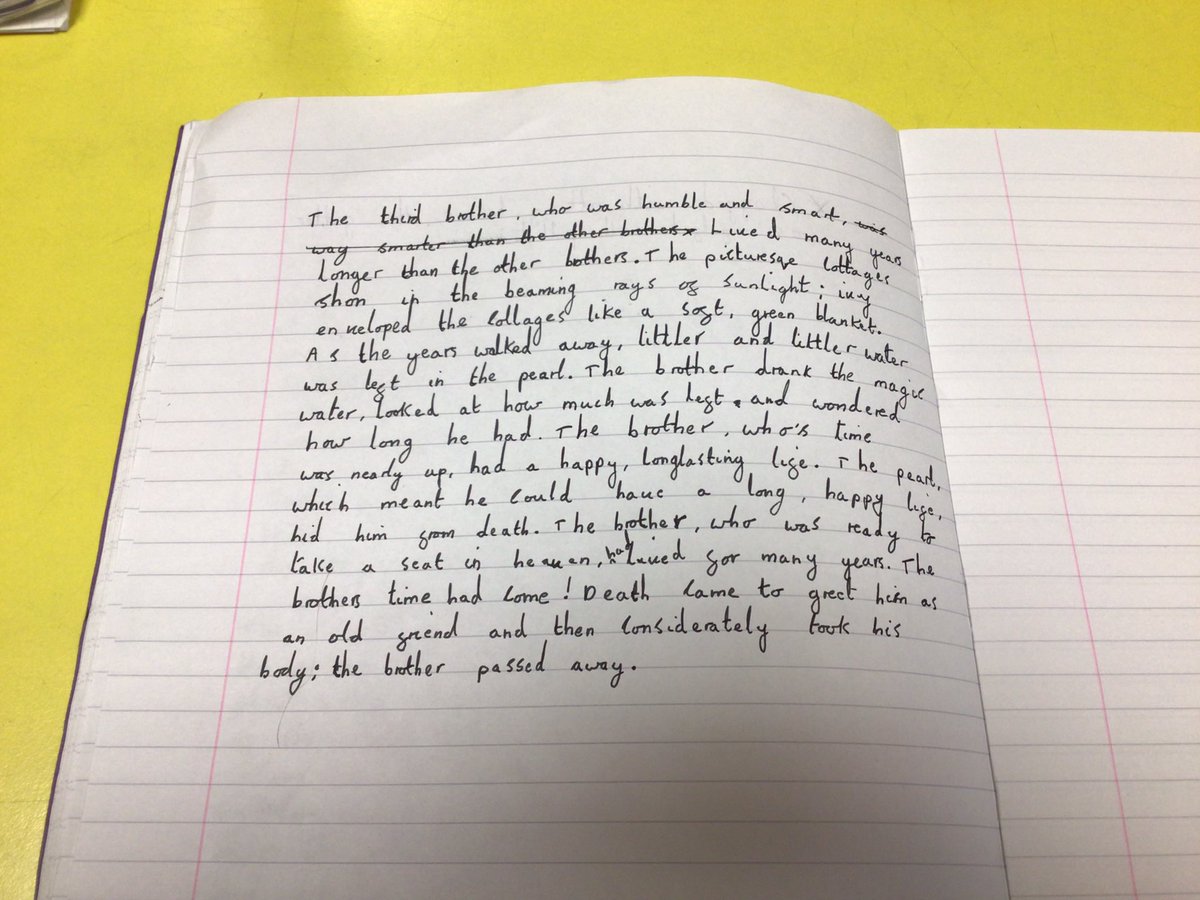 The third brother, who was humble and smart, was
way smarter than the other brothers. Lived many years
longer than the other bothers. The picturesqe cottages
shon in the beaming rays of sunlight; ivy
enveloped the collages like a soft, green blanket.
As the years walked away, littler and littler water
was left in the pearl. The brother drank the magic
water, looked at how much was left and wondered
how long he had. The brother, who's time
was nearly up, had a happy, longlasting life. The pearl,
which meant he could have a long, happy life,
hid him from death. The brother, who was ready to
take a seat in heaven, had lived for many years. The
brothers time had come! Death came to greet him as
an old friend and then considerately took his
body; the brother passed away.